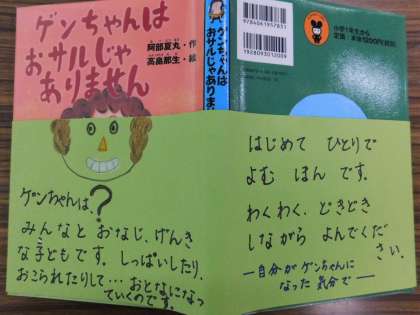 ゲンちゃんは
おサルじゃ
ありません
阿部夏丸・作
高畠那生・絵
ゲンちゃんは
おサルじゃありま
9784061957831
1928093012009
小学1年生から
定価:本体1200円(税別)
ゲンちゃんは、?
みんなと おなじ、げんき
な子どもです。しっぱいしたり、
おこられたりして…おとなになっ
ていくのです。
はじめて ひとりで
よむ ほん です。
わくわく、どきどき
しながら よんでくだ
さい。
―自分が ゲンちゃんに
なった 気分で―